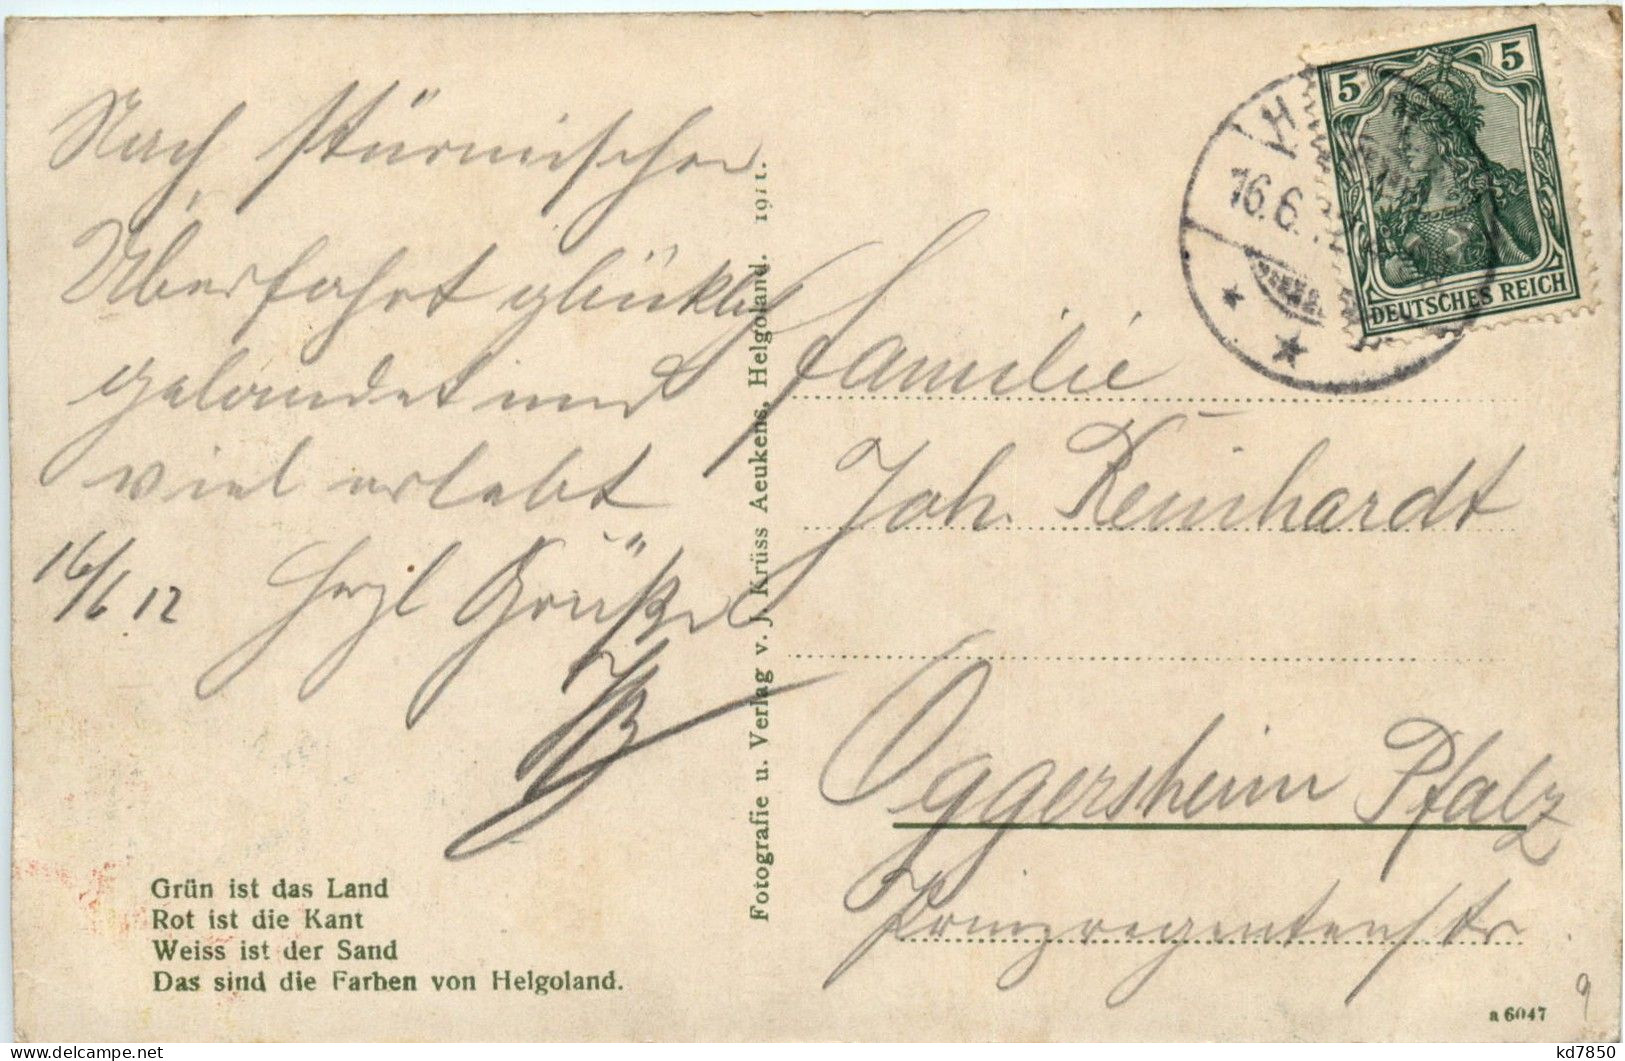 Nach stürmischer
Überfahrt glückl
gelandet und
viel erlebt
16/6 12 Herzl Grüße
Grün ist das Land
Rot ist die Kant
Weiss ist der Sand
Das sind die Farben von Helgoland.
Fotografie u. Verlag v. J. Krüss Aeukens, Helgoland. 1911.
5 5
DEUTSCHES REICH
16.6.
Familie
Joh. Reinhardt
Oggersheim Pfalz
Prinzregentenstr
9
a 6047
kd7850